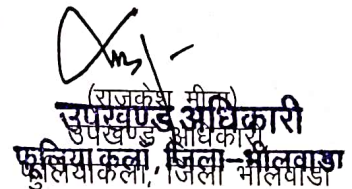 (राजकेश मीना)
उपखण्ड अधिकारी
उपखण्ड अधिकारी
फूलिया कला, जिला-भीलवाडा
फुलियाकला, जिला भीलवाडा